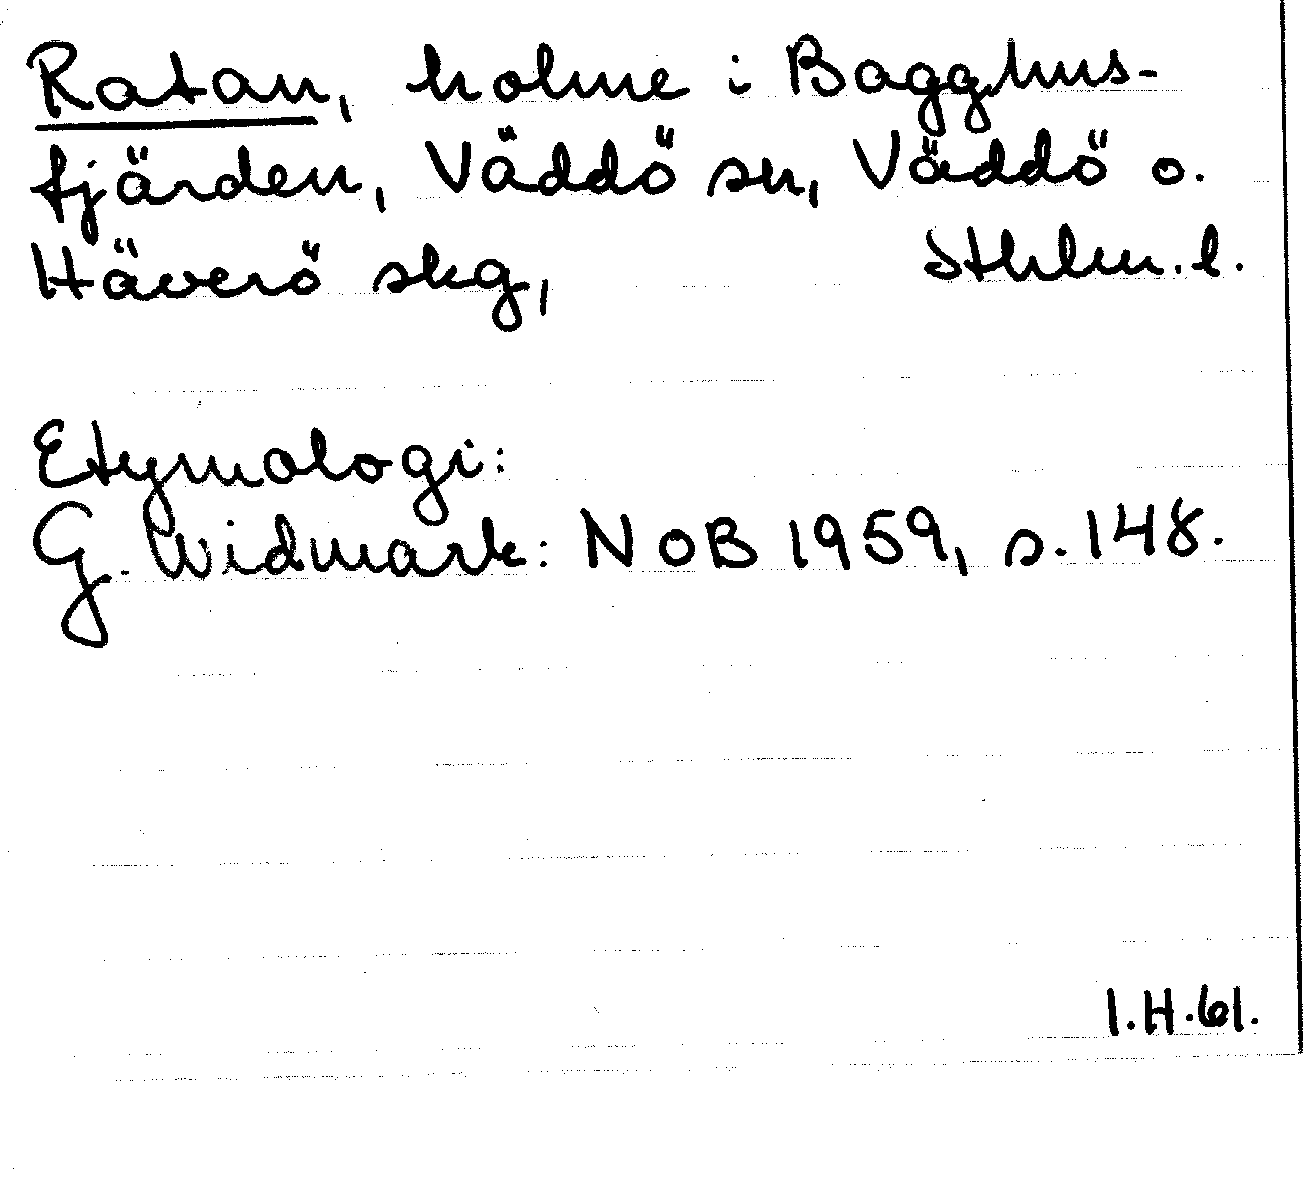 Ratan, holme i Bagghus-
fjärden, Väddö sn, Väddö o.
Häverö skg, Sthlm. l.
Etymologi:
G. Widmark: NoB 1959, s. 148.
I.H.61.